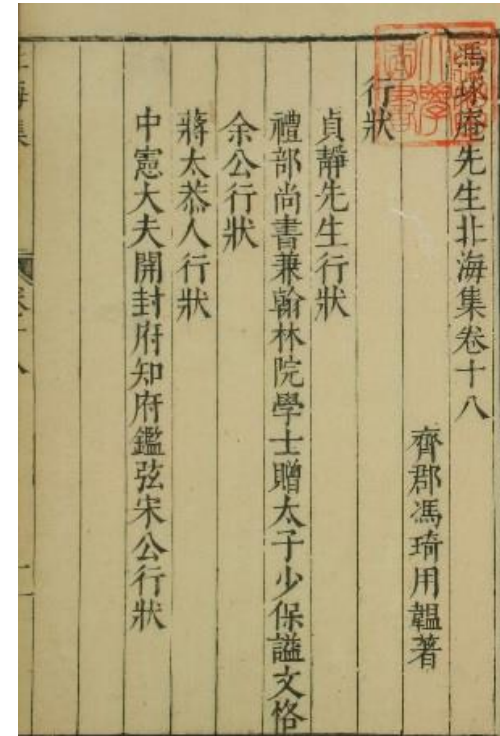 馮琢庵先生北海集卷十八
齊郡馮琦用韞著
行狀
貞靜先生行狀
禮部尚書兼翰林院學士贈太子少保謚文恪
余公行狀
蔣太恭人行狀
中憲大夫開封府知府鑑弦宋公行狀